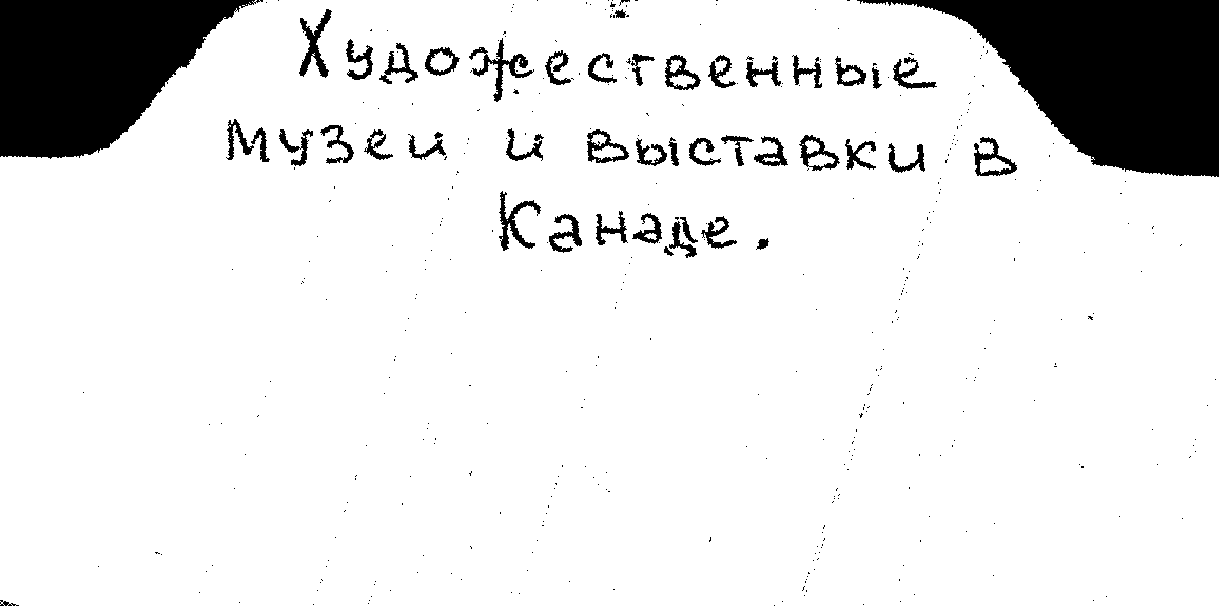 Художественные
музеи и выставки в
Канаде.